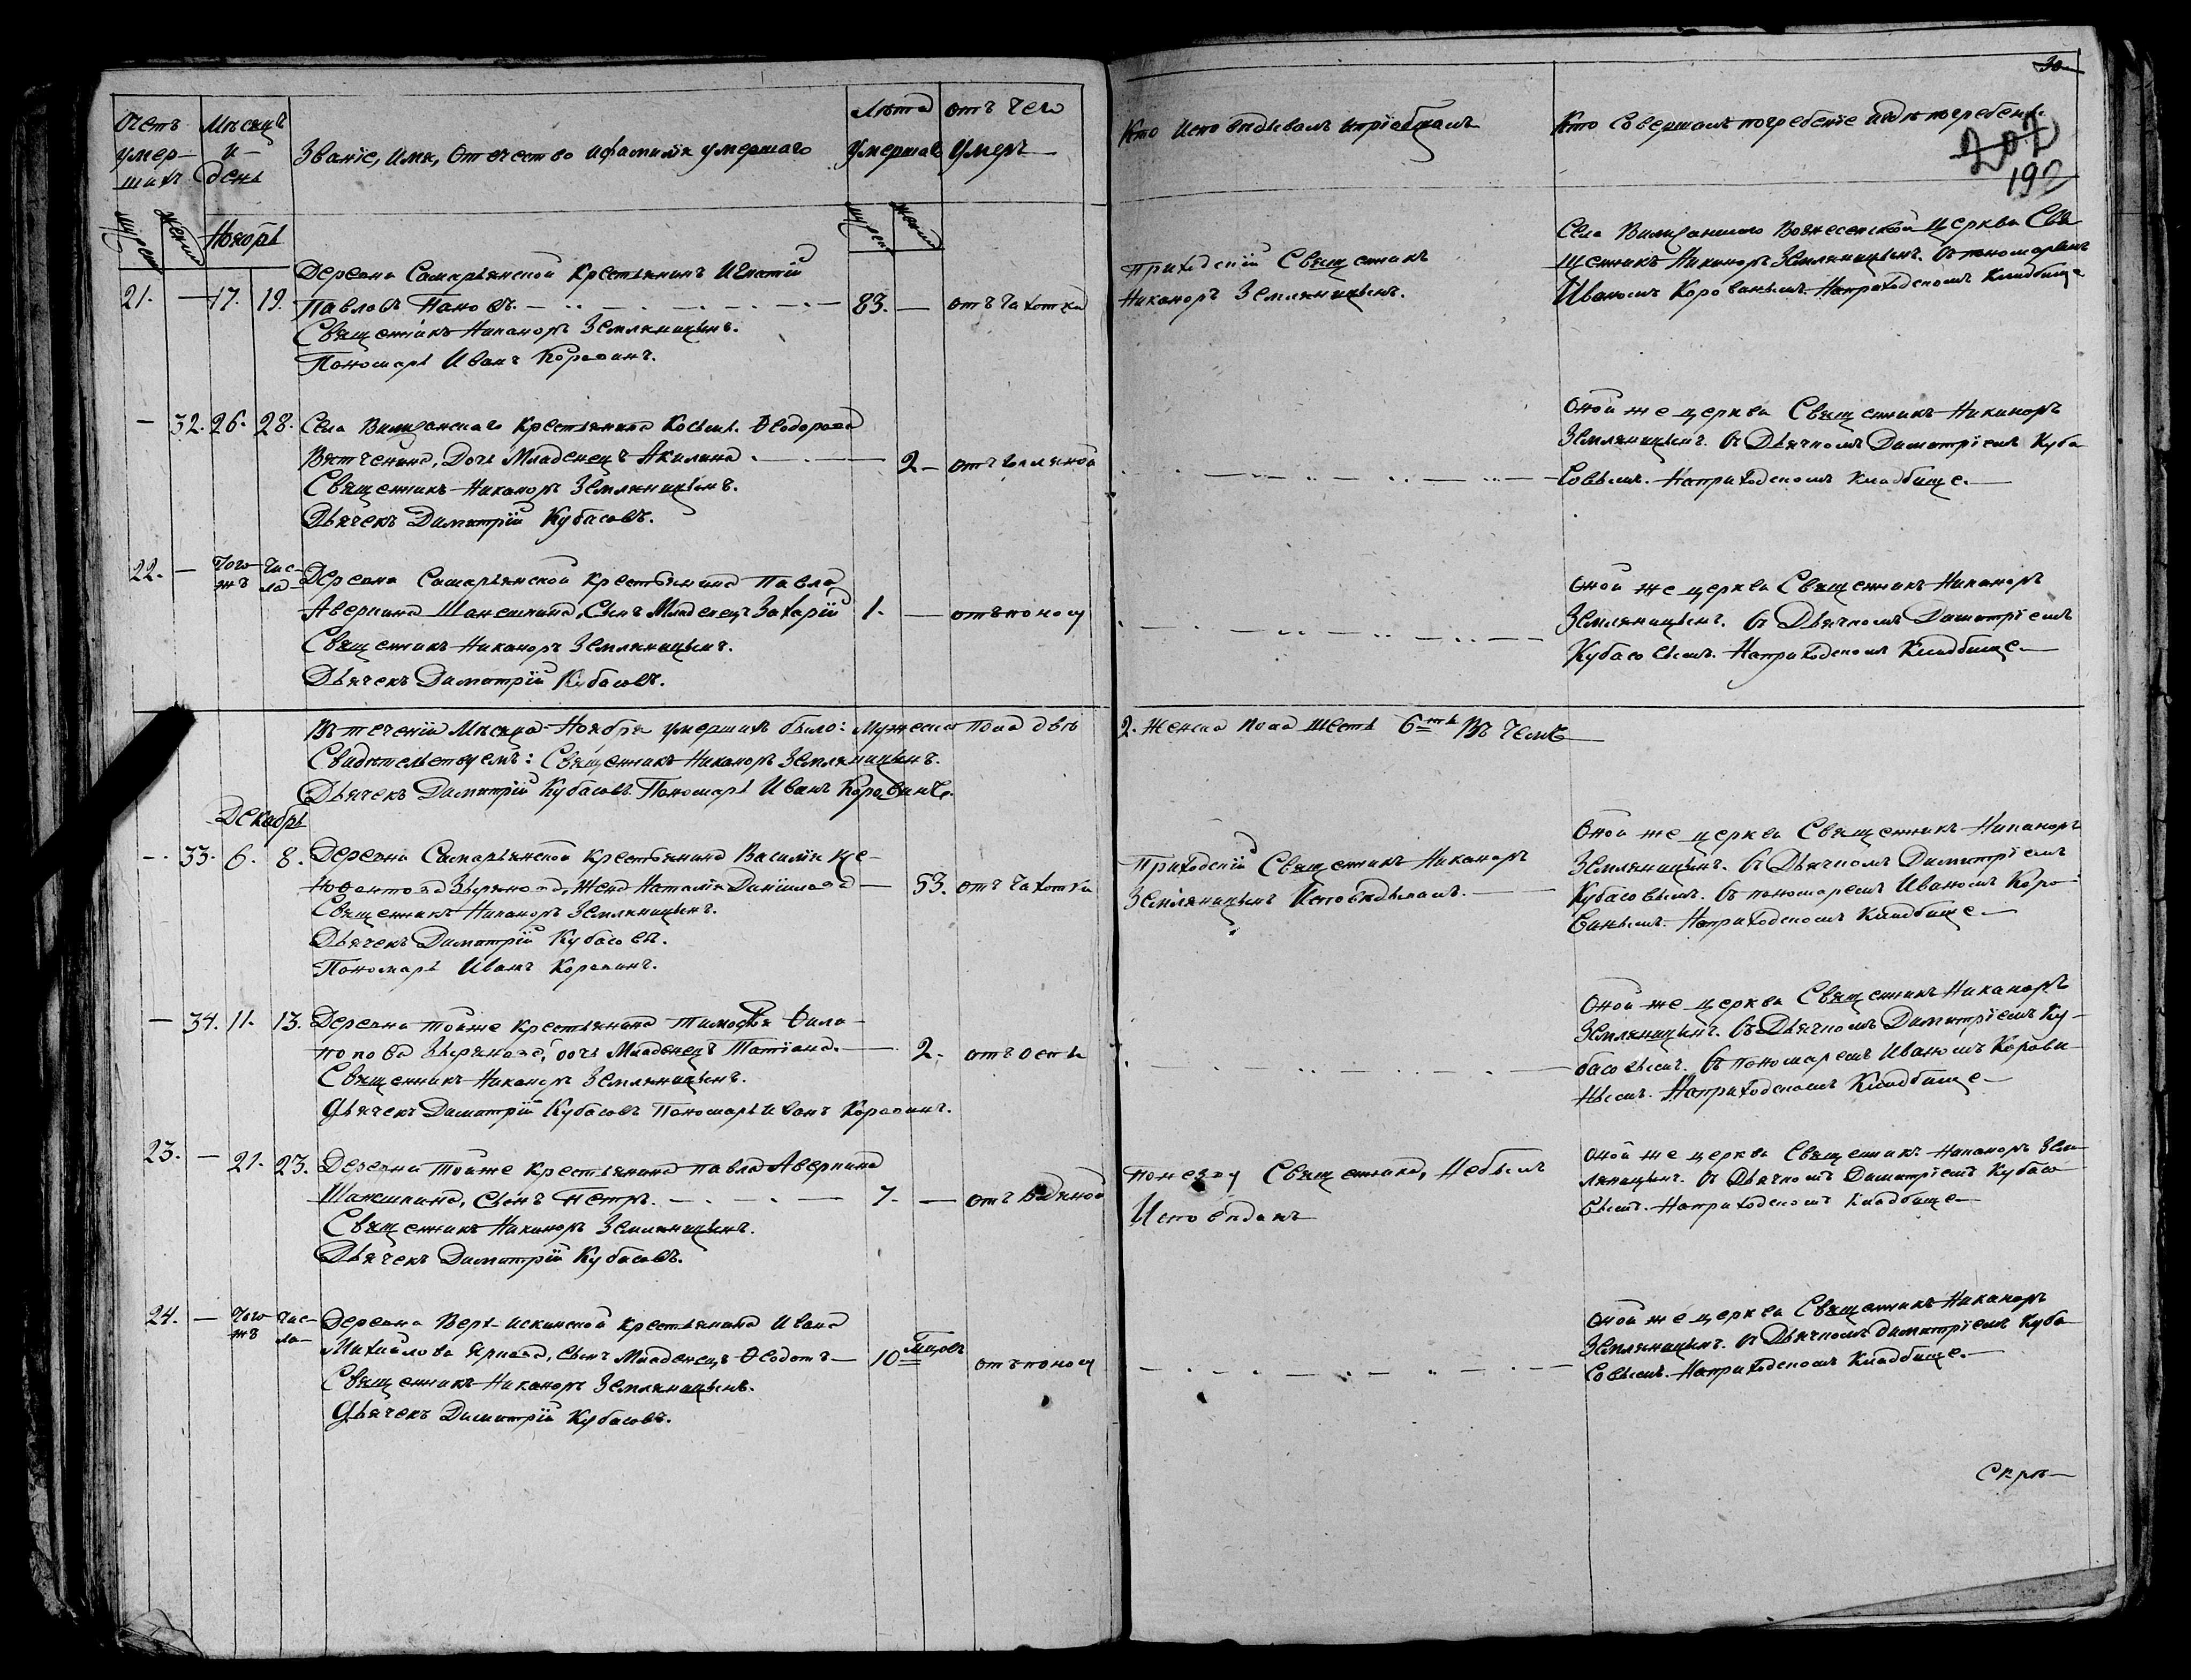 30
202
192
Счетъ умер-шихъ
Мѣсяцъ и день
Званіе, Имя, Отечество и фамилія умершаго
Лѣта умершаго
отъ чего умеръ
Кто исповѣдывалъ и пріобщалъ
Кто совершалъ погребеніе и гдѣ погребены
мужеск женск
Ноябрь
мужеск женск
21. — 17. 19. Деревни Самарьянской крестьянинъ Игнатій
Павловъ Пановъ. — 83. — отъ чахотки
Священникъ Никаноръ Земляницынъ.
Пономарь Иванъ Коровинъ.
Приходскій Священникъ
Никаноръ Земляницынъ.
Села Вознесенской церкви Свя
щенникъ Никаноръ Земляницынъ. Съ пономаремъ
Иваномъ Коровинымъ. На приходскомъ кладбище
— 32. 26. 28. Села крестьянина Косьмы Ѳеодорова
Вятченина, Дочь Младенецъ Акилина. — 2 —
Священникъ Никаноръ Земляницынъ.
Дьячекъ Димитрій Кубасовъ.
Оной же церкви Священникъ Никаноръ
Земляницынъ. Съ Дьячкомъ Димитріемъ Куба
совымъ. На приходскомъ кладбище.—
22. — Того жъ Чис-ла Деревни Самарьянской крестьянина Павла
Аверкина, Сынъ Младенецъ Захарій 1. — отъ поносу
Священникъ Никаноръ Земляницынъ.
Дьячекъ Димитрій Кубасовъ.
Оной же церкви Священникъ Никаноръ
Земляницынъ. Съ Дьячкомъ Димитріемъ
Кубасовымъ. На приходскомъ кладбище—
Въ теченіи Мѣсяца Ноября умершихъ было: мужеска пола двѣ 2. женска пола шесть 6ть Въ чемъ
Свидѣтельствуемъ: Священникъ Никаноръ Земляницынъ.
Дьячекъ Димитрій Кубасовъ. Пономарь Иванъ Коровинъ.
Декабрь
— 33. 6. 8. Деревни Самарьянской крестьянина Василія Ине-
нокентова Зырянова, Жена Наталія Даніилова — 53. отъ чахотки
Священникъ Никаноръ Земляницынъ.
Дьячекъ Димитрій Кубасовъ.
Пономарь Иванъ Коровинъ.
Приходскій Священникъ Никаноръ
Земляницынъ Исповѣдывалъ.
Оной же церкви Священникъ Никаноръ
Земляницынъ. Съ Дьячкомъ Димитріемъ
Кубасовымъ. Съ пономаремъ Иваномъ Коро
винымъ. На приходскомъ кладбище—
— 34. 11. 13. Деревни тойже крестьянина Тимофѣя Фила-
попова Зырянова, дочь Младенецъ Татіана. — 2. отъ оспы
Священникъ Никаноръ Земляницынъ.
Дьячекъ Димитрій Кубасовъ Пономарь Иванъ Коровинъ.
Оной же церкви Священникъ Никаноръ
Земляницынъ. Съ Дьячкомъ Димитріемъ Ку-
басовымъ. Съ пономаремъ Иваномъ Корови
нымъ. На приходскомъ кладбище—
23. — 21. 23. Деревни тойже крестьянина Павла Аверкина
сынъ Петръ. — 7. — отъ водяной
Священникъ Никаноръ Земляницынъ.
Дьячекъ Димитрій Кубасовъ.
Священника, Небылъ
Исповѣданъ
Оной же церкви Священникъ Никаноръ Зем-
ляницынъ. Съ Дьячкомъ Димитріемъ Кубасо
вымъ. На приходскомъ кладбище—
24. — Того жъ Чис-ла Деревни Верх-Искинской крестьянина Ивана
Михайлова, сынъ Младенецъ Ѳедотъ — 10 мцовъ отъ поносу
Священникъ Никаноръ Земляницынъ.
Дьячекъ Димитрій Кубасовъ.
Оной же церкви Священникъ Никаноръ
Земляницынъ. Съ Дьячкомъ Димитріемъ Куба
совымъ. На приходскомъ кладбище.—
Скрѣ—